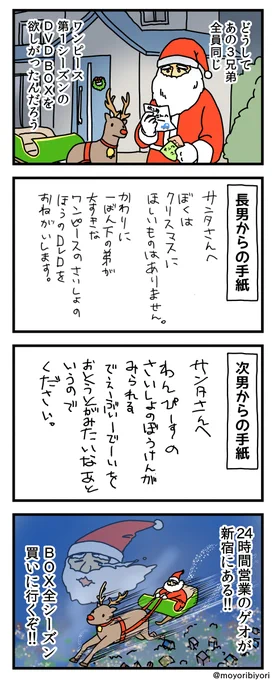 どうして
あの3兄弟
全員同じ
ワンピース
第1シーズンの
DVDBOXを
欲しがったんだろう
長男からの手紙
サンタさんへ
ぼくは
クリスマスに
ほしいものはありません。
かわりに
一ばん下の弟が
大すきな
ワンピースのさいしょの
ほうのDVDを
おねがいします。
次男からの手紙
サンタさんへ
わんぴーすの
さいしょのぼうけんが
みられる
でぃーぶいでぃーを
おとうとがみたいなあと
いうので
ください。
24時間営業のゲオが
新宿にある!!
BOX全シーズン
買いに行くぞ!!
@moyoribiyori